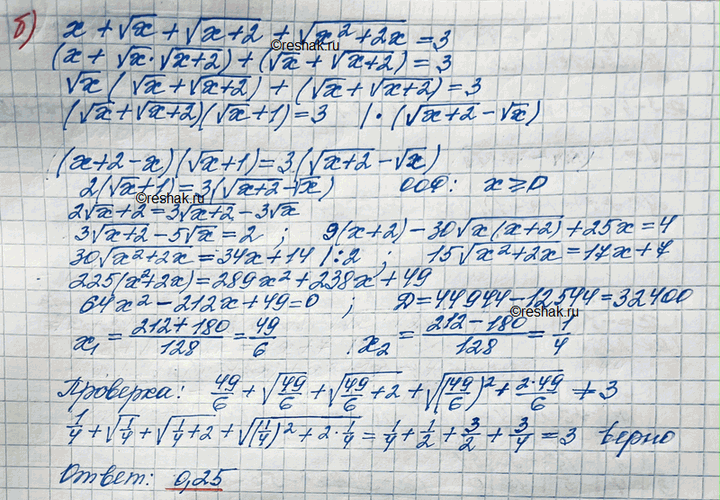 б) x + √x + √x+2 + √x²+2x = 3
(x + √x·√x+2) + (√x + √x+2) = 3
√x (√x + √x+2) + (√x + √x+2) = 3
(√x + √x+2)(√x+1) = 3 | · (√x+2 - √x)
(x+2-x)(√x+1) = 3(√x+2 - √x)
2(√x+1) = 3(√x+2 - √x) ООФ: x ≥ 0
2√x + 2 = 3√x+2 - 3√x
3√x+2 - 5√x = 2 ; 9(x+2) - 30√x(x+2) + 25x = 4
30√x²+2x = 34x + 14 | : 2 ; 15√x²+2x = 17x + 7
225(x²+2x) = 289x² + 238x + 49
64x² - 212x + 49 = 0 ; D = 44944 - 12544 = 32400
x₁ = (212+180)/128 = 49/6 . x₂ = (212-180)/128 = 1/4
Проверка: 49/6 + √49/6 + √49/6+2 + √(49/6)² + 2·49/6 ≠ 3
1/4 + √1/4 + √1/4+2 + √(1/4)² + 2·1/4 = 1/4 + 1/2 + 3/2 + 3/4 = 3 верно
Ответ: 0,25
©reshak.ru
©reshak.ru
©reshak.ru